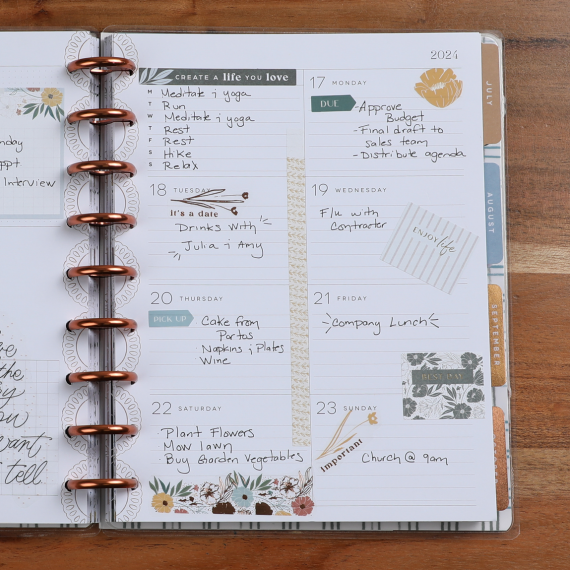 nday
ppt
Interview
the
ou
want
tell
2024
CREATE A life YOU love
M Meditate & yoga
T Run
W Meditate & yoga
T Rest
F Rest
S Hike
S Relax
17 MONDAY
DUE
-Approve
Budget
-Final draft to
sales team
-Distribute agenda
18 TUESDAY
it's a date
Drinks With
Julia & Amy
19 WEDNESDAY
F/u with
Contractor
ENJOY life
20 THURSDAY
PICK UP
Cake from
Portos
Napkins & Plates
Wine
21 FRIDAY
Company Lunch
22 SATURDAY
Plant Flowers
Mow lawn
Buy Garden Vegetables
23 SUNDAY
Important
Church @ 9am
JULY
AUGUST
SEPTEMBER